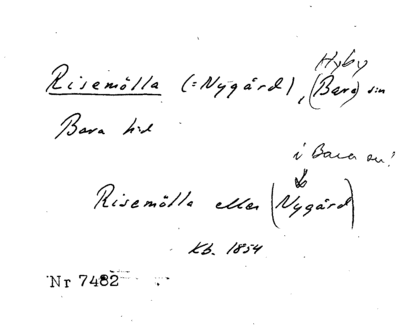 Hyby
Risemölla (= Nygård), (Bara) sn
Bara hd
i Bara sn!
Risemölla eller (Nygård)
Kb. 1854
Nr 7482